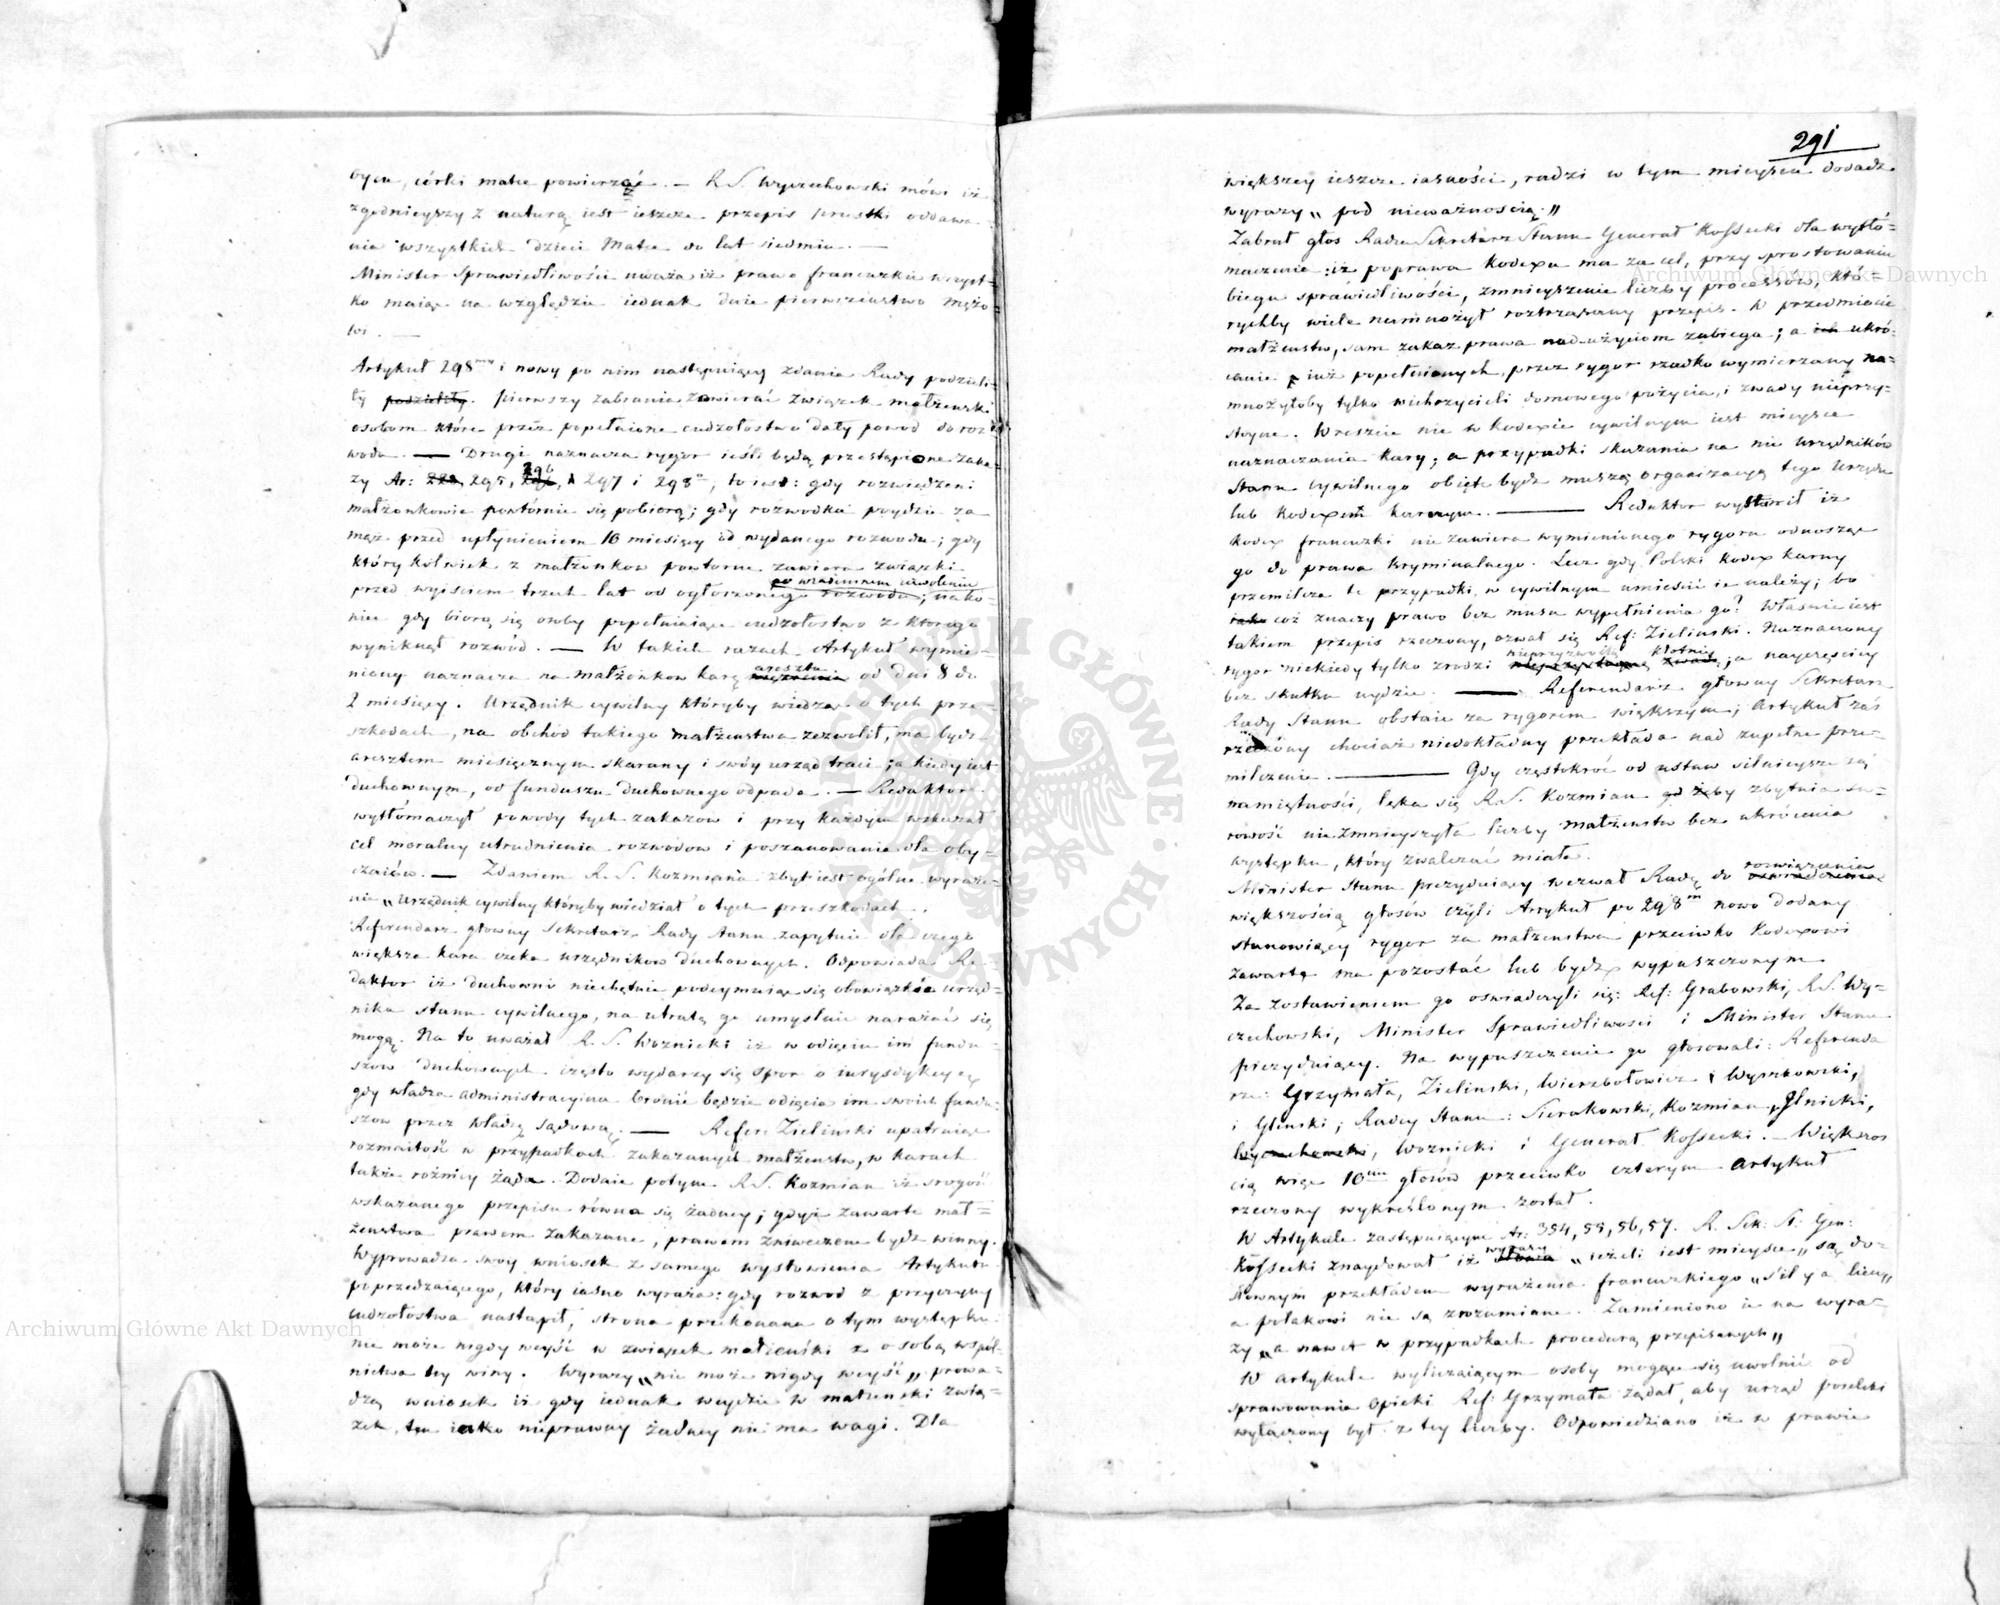 oycu, córki matce powierzać. — R. S. Wyczechowski mówi iż
zgodnieyszy z naturą iest ieszcze przepis pruski oddawa-
nia wszystkich dzieci Matce do lat siedmiu. —
Minister Sprawiedliwości uważa iż prawo francuzkie wszyst-
ko maiąc na względzie iednak daie pierwszeństwo mężo-
wi. —
Artykuł 298my i nowy po nim następuiący zdania Rady podzieli-
ły podzieliły. Pierwszy zabrania zawierać związek małżeński
osobom które przez popełnione cudzołostwo dały powod do roz-
wodu. — Drugi naznacza rygor ieśli będą przestąpione zaka-
zy Ar: 295, 296, 297 i 298o, to iest: gdy rozwiedzeni
małżonkowie powtornie się pobiorą; gdy rozwodka poydzie za
mąż przed upłynieniem 10 miesięcy od wydanego rozwodu; gdy
który kolwiek z małżonkow powtorne zawiera związki
po wzaiemnem zezwoleniu
przed wyiściem trzech lat od ogłoszonego rozwodu; nako-
niec gdy biorą się osoby popełniaiące cudzołostwo z ktorego
wyniknął rozwód. — W takich razach Artykuł wymie-
aresztu
niony naznacza na małżonkow karę więzienia od dni 8 do
2 miesięcy. Urzędnik cywilny któryby wiedząc o tych prze-
szkodach, na obchod takiego małżenstwa zezwolił, ma bydź
aresztem miesięcznym skarany i swóy urząd traci; a kiedy iest
duchownym, od funduszu duchownego odpada. — Redaktor
wytłómaczył powody tych zakazow i przy każdym wskazał
cel moralny utrudnienia rozwodow i poszanowania dla oby-
czaiów. — Zdaniem R. S. Kozmiana zbyt iest ogólne wyraże-
nie „Urzędnik cywilny któryby wiedział o tych przeszkodach.
Referendarz głowny Sekretarz Rady Stanu zapytuie dla czego
większa kara czeka urzędnikow duchownych. Odpowiada Re-
daktor iż duchowni niechętnie podeymuiąc się obowiązków urzęd-
nika stanu cywilnego, na utratę go umyślnie narażać się
mogą. Na to uważał R. S. Woznicki iż w odięciu im fundu-
szow duchownych często wydarzy się spor o iurysdykcyą
gdy władza administracyina bronić będzie odięcia im swoich fundu-
szow przez władzę sądową. — Refer: Zielinski upatruiąc
rozmaitość w przypadkach zakazanych małżenstw, w karach
także rożnicy żąda. Dodaie potym R. S. Kozmian iż srogość
wskazanego przepisu równa się żadney; gdyż zawarte mał-
żenstwa prawem zakazane, prawem zniweczone bydź winny.
Wyprowadza swoy wniosek z samego wysłowienia Artykułu
poprzedzaiącego, który iasno wyraża: gdy rozwod z przyczyny
cudzołostwa nastąpił, strona przekonana o tym występku
nie może nigdy weyść w związek małżeński z osobą współ-
nictwa tey winy. Wyrazy „nie może nigdy weyść„ prowa-
dzą wniosek iż gdy iednak weydzie w małżenski zwią-
zek, ten iako nieprawny żadney nie ma wagi. Dla
291
większey ieszcze iasności, radzi w tym mieyscu dodadź
wyrazy „pod nieważnością.„
Zabrał głos Radca Sekretarz Stanu Generał Kossecki dla wytłó-
maczenia: iż poprawa Kodexu ma za cel, przy sprostowaniu
biegu sprawiedliwości, zmnieyszenie liczby processów, któ-
rychby wiele namnożył roztrząsany przepis. W przedmiocie
małżenstw, sam zakaz prawa nadużyciom zabiega; a ich ukró-
cenie iuż popełnionych, przez rygor rzadko wymierzany na-
mnożyłoby tylko wichrzycieli domowego pożycia, i zwady nieprzy-
stoyne. Wreszcie nie w Kodexie cywilnym iest mieysce
naznaczania kary; a przypadki skazania na nie urzędników
Stanu cywilnego obięte bydź muszą organizacyą tego Urzędu
lub Kodexem karnym. — Redaktor wystawił iż
Kodex francuzki nie zawiera wymienionego rygoru odnosząc
go do prawa kryminalnego. Lecz gdy Polski Kodex karny
przemilcza te przypadki, w cywilnym umieścić ie należy; bo
iako coż znaczy prawo bez musu wypełnienia go? Właśnie iest
takiem przepis rzeczony, ozwał się Ref: Zielinski. Naznaczony
nieprzyzwoitą kłotnię
rygor niekiedy tylko zrodzi zwadę; a nayczęściey
bez skutku uydzie. — Referendarz głowny Sekretarz
Rady Stanu obstaie za rygorem większym; Artykuł zaś
rzeczony chociaż niedokładny przekłada nad zupełne prze-
milczenie. — Gdy częstokroć od ustaw silnieysze są
namiętności, lęka się R. S. Kozmian żeby zbytnia su-
rowość nie zmnieyszyła liczby małżenstw bez ukrócenia
występku, który zwalczać miała.
rozwiązania
Minister Stanu prezyduiący wezwał Radę do
większością głosów czyli Artykuł po 298m nowo dodany
stanowiący rygor za małzenstwa przeciwko Kodexowi
zawarte ma pozostać lub bydź wypuszczonym
Za zostawieniem go oswiadczyli się: Ref: Grabowski, R. S. Wy-
czechowski, Minister Sprawiedliwosci i Minister Stanu
prezyduiący. Na wypuszczenie go głosowali: Referenda-
rze: Grzymała, Zielinski, Wierzbołowicz i Wyszkowski,
i Glinski; Radcy Stanu: Sierakowski, Kozmian, Jlnicki,
Wyczechowski, Woznicki i Generał Kossecki. — Większos
cią więc 10ciu głosów przeciwko czterym Artykuł
rzeczony wykreślonym został.
W Artykule zastępuiącym Ar: 354, 55, 56, 57. R. Sek: St: Gen:
wyrazy
Kossecki znaydował iż słowa „ieżeli iest mieysce„ są do-
słownym przekładem wyrażenia francuzkiego „s'il y a lieu„
a polakowi nie są zrozumiane. Zamieniono ie na wyra-
zy „a nawet w przypadkach procedurą przepisanych„
W artykule wyliczaiącym osoby mogące się uwolnić od
sprawowania opieki Ref: Grzymała żądał, aby urząd poselski
wyłączony był z tey liczby. Odpowiedziano iż w prawie
Archiwum Główne Akt Dawnych
Archiwum Główne Akt Dawnych
ARCHIWUM GŁÓWNE AKT DAWNYCH